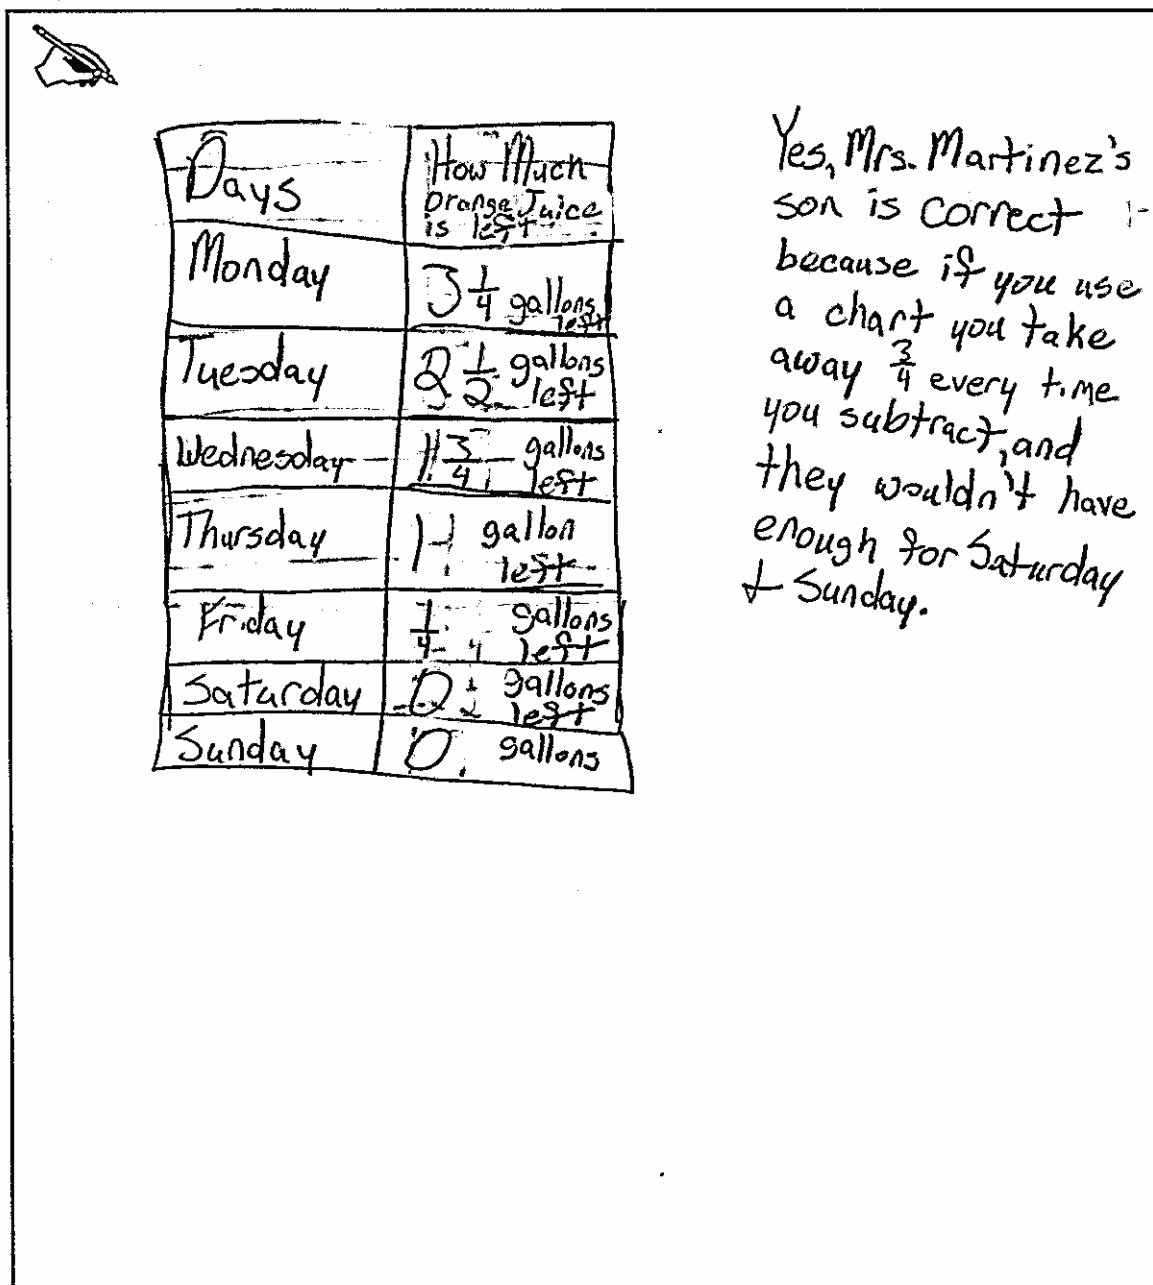 Days
How Much
Orange Juice
is left
Monday
3 1/4 gallons
left
Tuesday
2 1/2 gallons
left
Wednesday
1 3/4 gallons
left
Thursday
1 gallon
left
Friday
1/4 gallons
left
Saturday
0 gallons
left
Sunday
0 gallons
Yes, Mrs. Martinez's
son is correct
because if you use
a chart you take
away 3/4 every time
you subtract, and
they wouldn't have
enough for Saturday
+ Sunday.